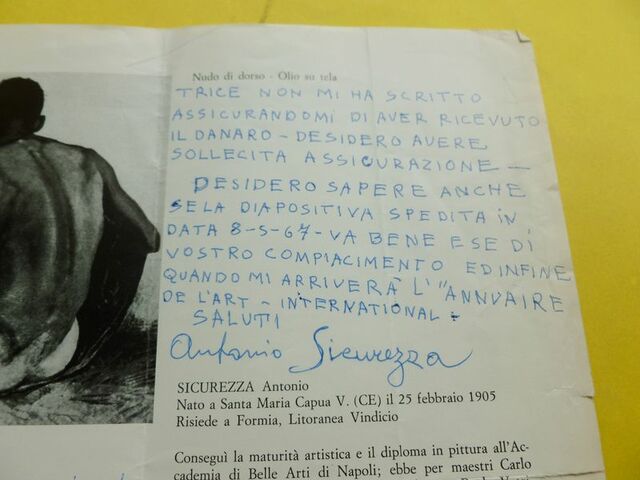 Nudo di dorso - Olio su tela
TRICE NON MI HA SCRITTO
ASSICURANDOMI DI AVER RICEVUTO
IL DANARO - DESIDERO AVERE
SOLLECITA ASSICURAZIONE -
DESIDERO SAPERE ANCHE
SE LA DIAPOSITIVA SPEDITA IN
DATA 8-5-67 - VA BENE E SE DI
VOSTRO COMPIACIMENTO ED INFINE
QUANDO MI ARRIVERÀ L'"ANNUAIRE
DE L'ART - INTERNATIONAL -
SALUTI
Antonio Sicurezza
SICUREZZA Antonio
Nato a Santa Maria Capua V. (CE) il 25 febbraio 1905
Risiede a Formia, Litoranea Vindicio
Conseguì la maturità artistica e il diploma in pittura all'Ac-
cademia di Belle Arti di Napoli; ebbe per maestri Carlo